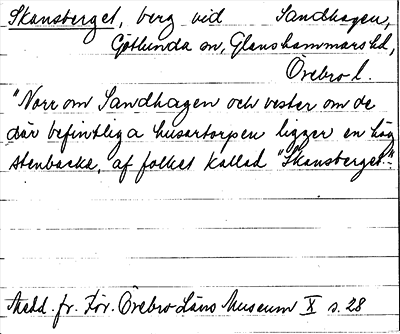 Skansberget, berg vid Sandhagen,
Götlunda sn, Glanshammars hd,
Örebro l.
"Norr om Sandhagen och vester om de
där befintliga husartorpen ligger en hög
stenbacke, af folket kallad "Skansberget."
Medd. fr. För. Örebro Läns Museum X s. 28